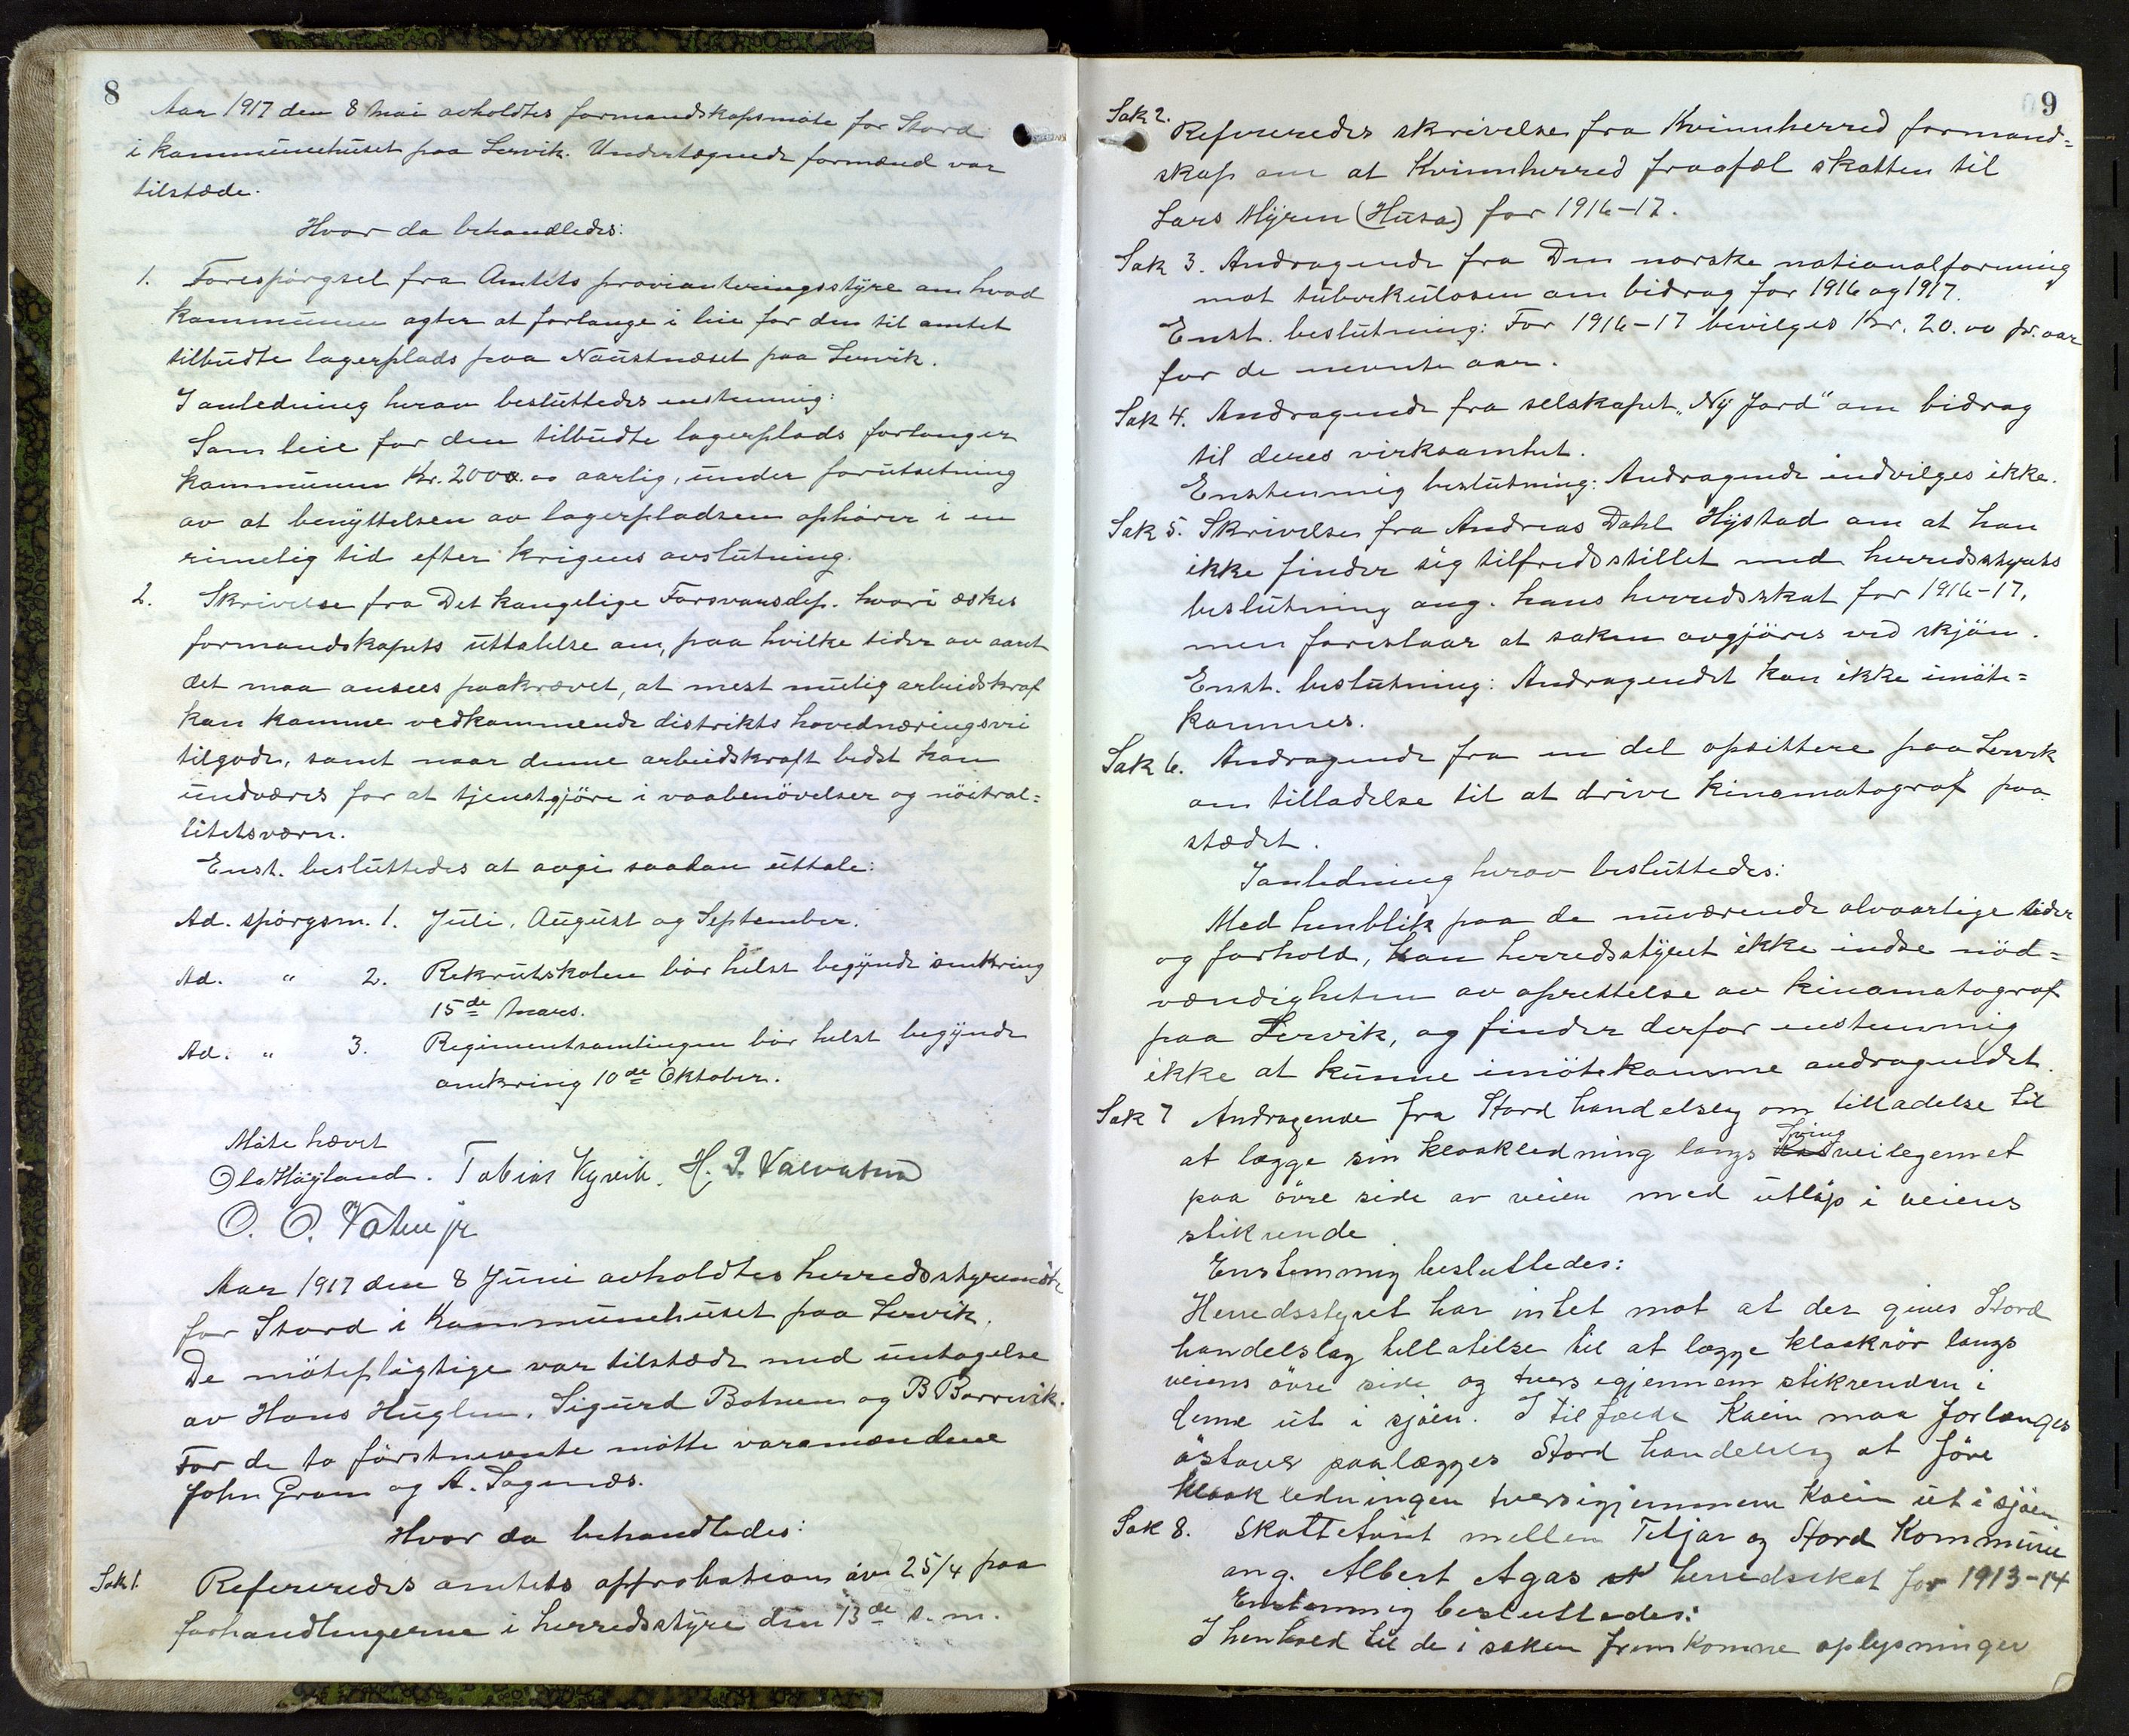 8
Aar 1917 den 8 Mai avholdtes formandskapsmöte for Stord
i kommunehuset paa Lervik. Undertegnede formænd var
tilstæde.
Hvor da behandledes:
1. Forespörgsel fra Amtets provianteringsstyre om hvad
kommunen agter at forlange i leie for den til amtet
tilbudte lagerplads paa Naustneset paa Lervik.
I anledning herav besluttedes enstemmig:
Som leie for den tilbudte lagerplads forlanger
kommunen Kr. 2000.00 aarlig, under forutsetning
av at benyttelsen av lagerpladsen ophörer i en
rimelig tid efter krigens avslutning.
2. Skrivelse fra Det kongelige Forsvarsdep. hvori æskes
formandskapets uttalelse om, paa hvilke tider av aaret
det maa ansees paakrævet, at mest mulig arbeidskraf
kan komme vedkommende distrikts hovednæringsvei
tilgode, samt naar denne arbeidskraft bedst kan
undværes for at tjenestgjöre i vaabenövelser og nöitral=
litetsværn.
Enst. besluttedes at avgi saadan uttale:
Ad. spörgsm. 1. Juli, August og September.
Ad. " 2. Rekrutskolen bör helst begynde omkring
15de Mars.
Ad. " 3. Regimentsamlingen bör helst begynde
omkring 10de Oktober.
Möte hævet
Ola Högland. Tobias Kyvik. H. P. Valvatna
O. O. Vatne jr
Aar 1917 den 8 Juni avholdtes herredsstyremöte
for Stord i Kommunehuset paa Lervik.
De mötepligtige var tilstæde med untagelse
av Hans Huglen, Sigurd Botnen og B Borrevik.
For de to förstnevnte mötte varamændene
John Gram og A. Sagenes.
Hvor da behandledes:
Sak 1. Refereredes amtets approbation av 25/4 paa
forhandlingerne i herredsstyre den 13de s. m.
9
Sak 2. Refereredes skrivelse fra Kvinnherred formand=
skap om at Kvinnherred frafal skatten til
Lars Myren (Husa) for 1916-17.
Sak 3. Andragende fra Den norske nationalforening
mot tuberkulosen om bidrag for 1916 og 1917.
Enst. beslutning: For 1916-17 bevilges Kr. 20.00 pr. aar
for de nevnte aar.
Sak 4. Andragende fra selskapet „Ny Jord" om bidrag
til deres virksomhet.
Enstemmig beslutning: Andragende indvilges ikke.
Sak 5. Skrivelse fra Andreas Dahl Hystad om at han
ikke finder sig tilfredsstillet med herredsstyrets
beslutning ang. hans herredsskat for 1916-17,
men foreslaar at saken avgjöres ved skjön.
Enst. beslutning: Andragendet kan ikke imöte=
kommes.
Sak 6. Andragende fra en del opsittere paa Lervik
om tilladelse til at drive kinematograf paa
stædet.
I anledning herav besluttedes:
Med henblik paa de nuværende alvaarlige tider
og forhold, kan herredsstyret ikke indse nöd=
vændigheten av oprettelse av kinematograf
paa Lervik, og finder derfor enstemmig
ikke at kunne imötekomme andragendet.
Sak 7 Andragende fra Stord handelslag om tilladelse til
at lægge sin kloakledning langs veilegemet
paa övre side av veien med utlöp i veiens
stikrende
Enstemmig besluttedes:
Herredsstyret har intet mot at der gives Stord
handelslag tillatelse til at lægge kloakrör langs
veiens övre side og tvers igjennem stikrenden i
denne ut i sjöen. I tilfælde Kaien maa forlænges
östover paalægges Stord handelslag at före
kloakledningen tversigjennem Kaien ut i sjöen
Sak 8. Skattetvist mellem Titjar og Stord Kommune
ang. Albert Agas herredsskat for 1913-14
Enstemmig besluttedes:
I henhold til de i saken fremkomne oplysninger